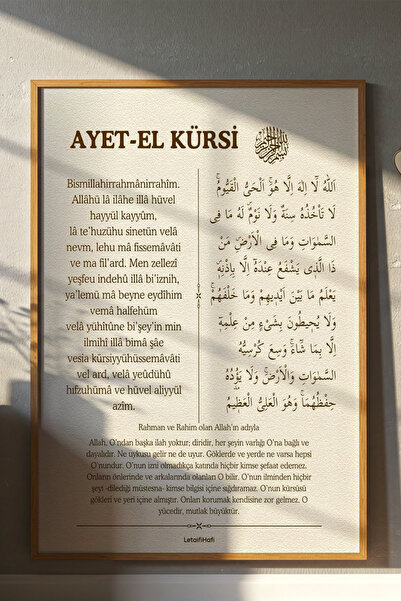 AYET-EL KÜRSİ
Bismillahirrahmânirrahîm.
Allâhü lâ ilâhe illâ hüvel
hayyül kayyûm,
lâ te'huzühu sinetün velâ
nevm, lehu mâ fissemâvâti
ve ma fil'ard. Men zellezî
yeşfeu indehû illâ bi'iznih,
ya'lemü mâ beyne eydîhim
vemâ halfehüm
velâ yühîtûne bi'şey'in min
ilmihî illâ bimâ şâe
vesia kürsiyyühüssemâvâti
vel ard, velâ yeûdühû
hıfzuhümâ ve hüvel aliyyül
azîm.
اَللّٰهُ لَٓا اِلٰهَ اِلَّا هُوَۚ اَلْحَيُّ الْقَيُّومُۚ
لَا تَأْخُذُهُ سِنَةٌ وَلَا نَوْمٌۜ لَهُ مَا فِي
السَّمٰوَاتِ وَمَا فِي الْاَرْضِۜ مَنْ
ذَا الَّذٖي يَشْفَعُ عِنْدَهُٓ اِلَّا بِاِذْنِهٖۜ
يَعْلَمُ مَا بَيْنَ اَيْدٖيهِمْ وَمَا خَلْفَهُمْۚ
وَلَا يُحٖيطُونَ بِشَيْءٍ مِنْ عِلْمِهٖٓ
اِلَّا بِمَا شَٓاءَۚ وَسِعَ كُرْسِيُّهُ
السَّمٰوَاتِ وَالْاَرْضَۚ وَلَا يَؤُ۫دُهُ
حِفْظُهُمَاۚ وَهُوَ الْعَلِيُّ الْعَظٖيمُ
Rahman ve Rahim olan Allah'ın adıyla
Allah, O'ndan başka ilah yoktur; diridir, her şeyin varlığı O'na bağlı ve
dayalıdır. Ne uykusu gelir ne de uyur. Göklerde ve yerde ne varsa hepsi
O'nundur. O'nun izni olmadıkça katında hiçbir kimse şefaat edemez.
Onların önlerinde ve arkalarında olanları O bilir. O'nun ilminden hiçbir
şeyi -dilediği müstesna- kimse bilgisi içine sığdıramaz. O'nun kürsüsü
gökleri ve yeri içine almıştır. Onları korumak kendisine zor gelmez. O
yücedir, mutlak büyüktür.
LetaifiHafi